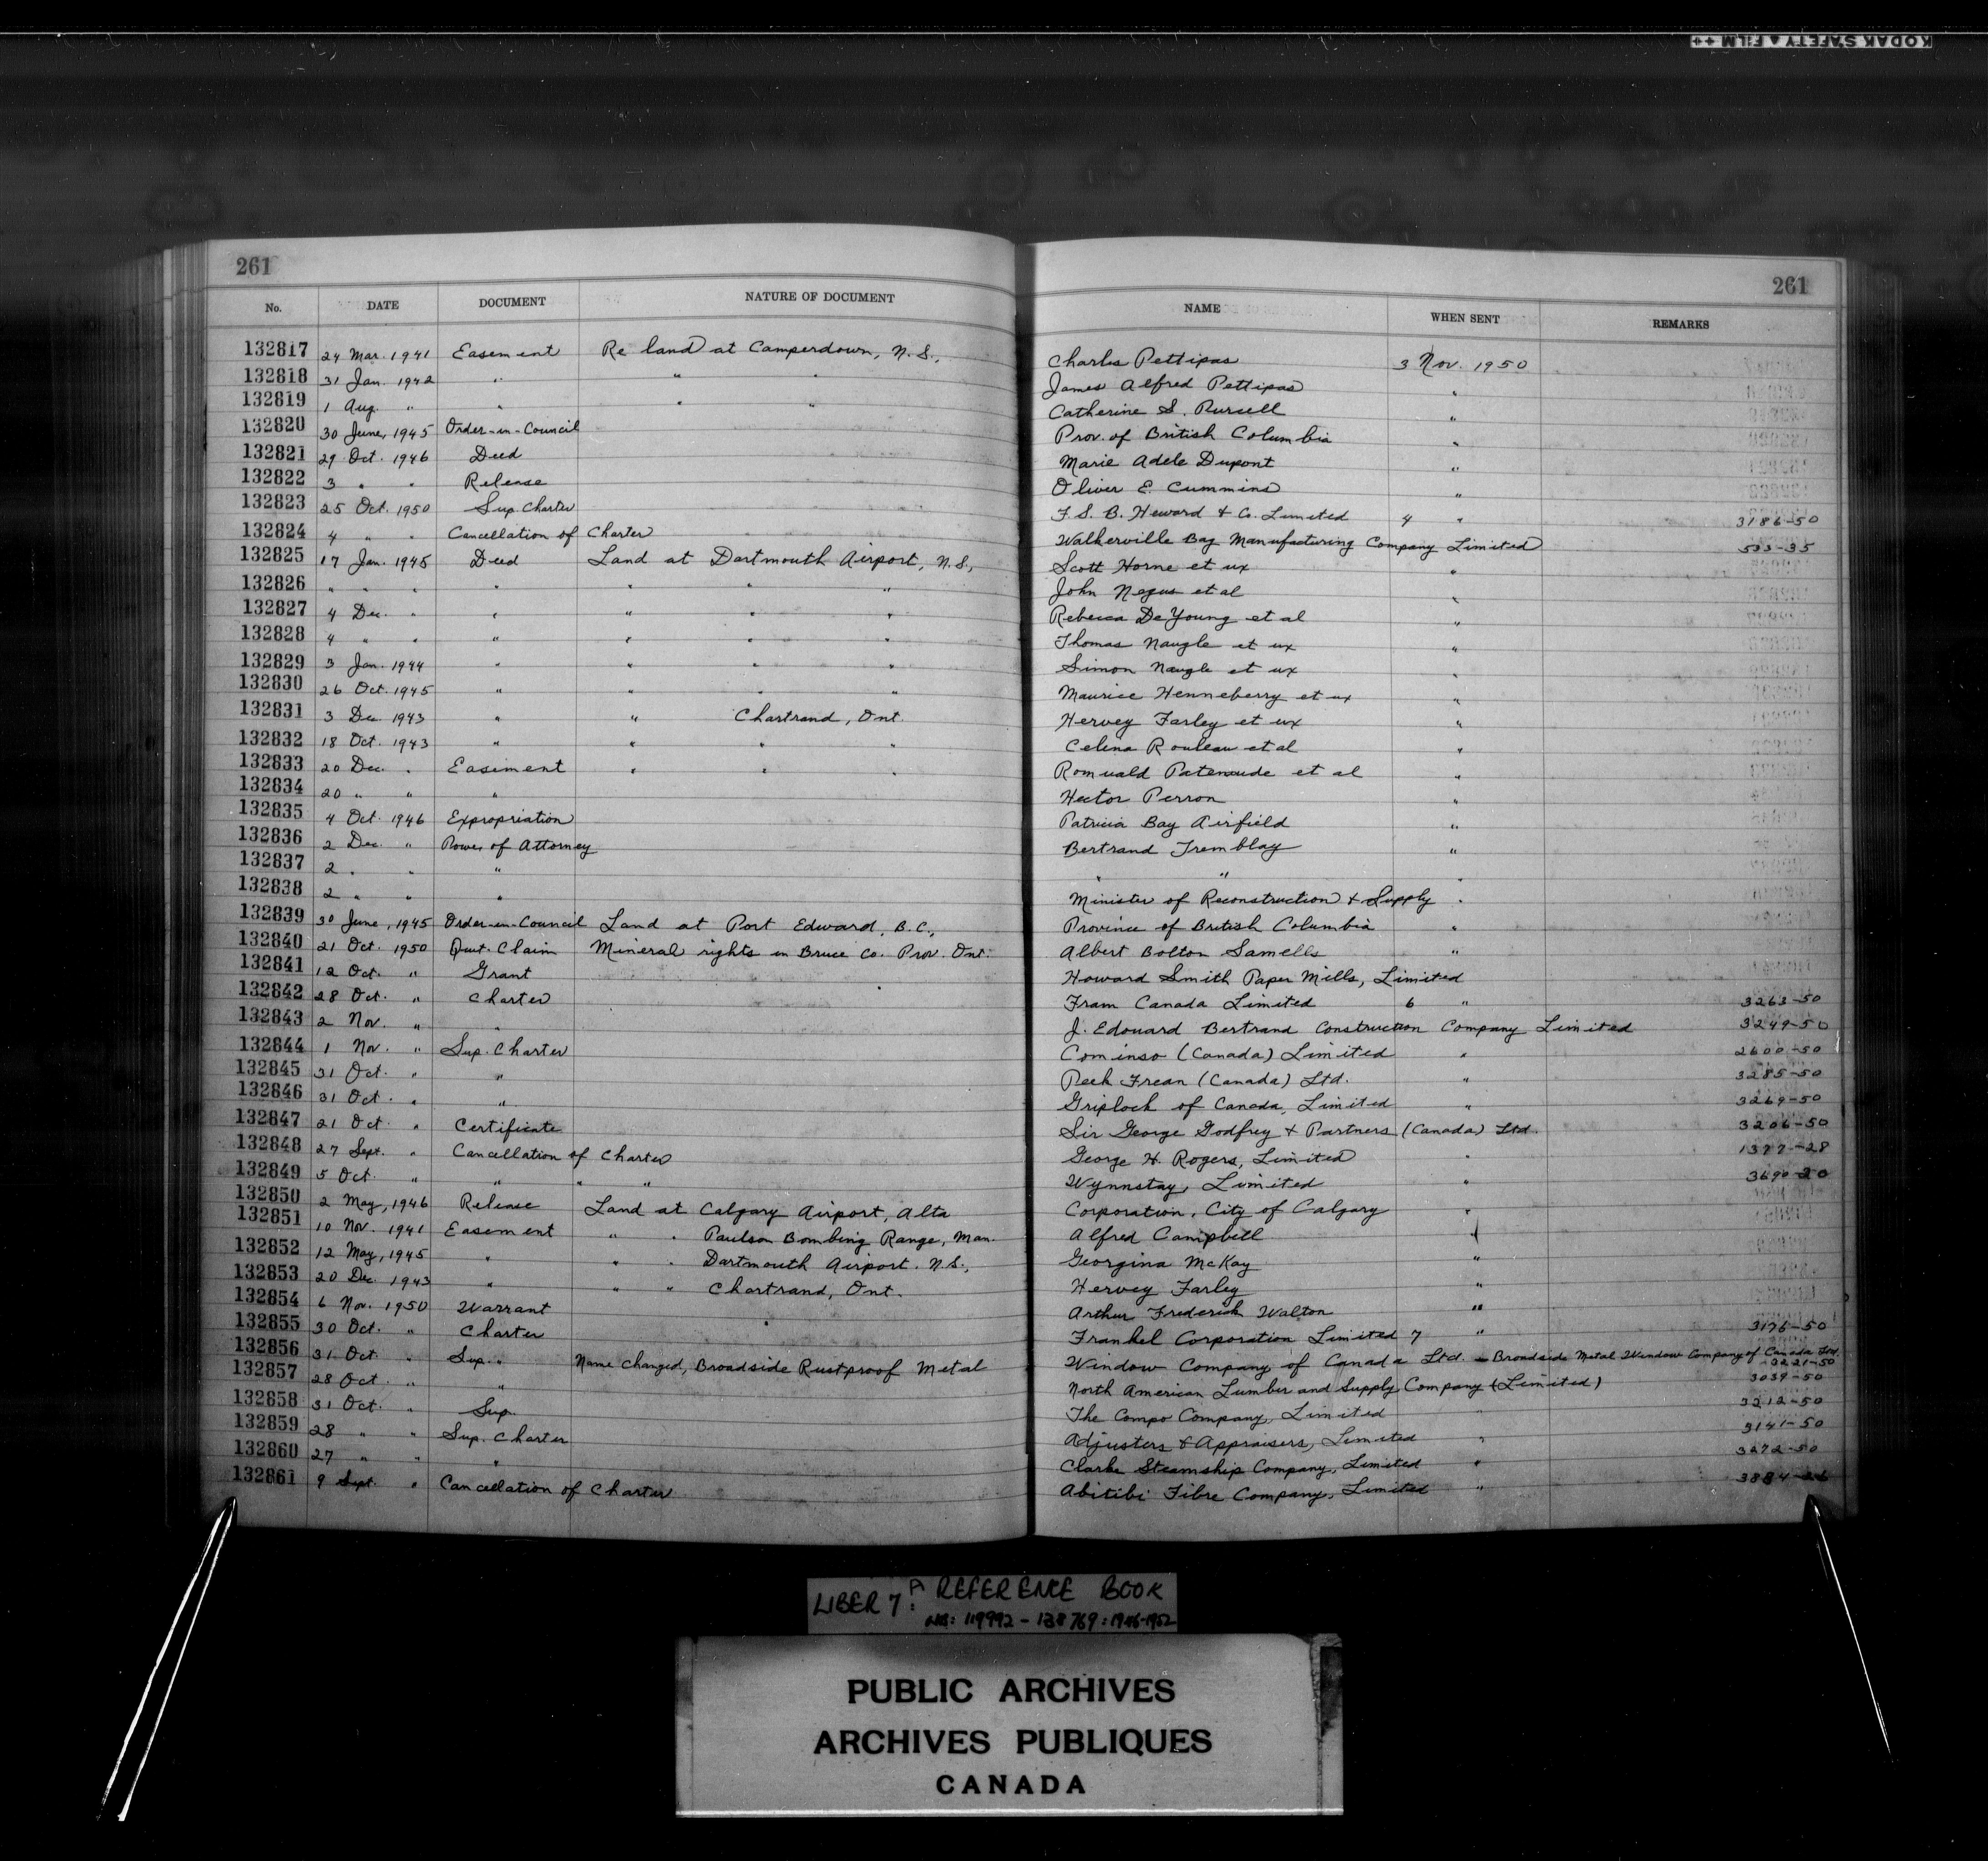 KODAK SAFETY FILM
261 261
No. DATE DOCUMENT NATURE OF DOCUMENT NAME WHEN SENT REMARKS
132817 24 Mar. 1941 Easement Re land at Camperdown, N.S., Charles Pettipas 3 Nov. 1950
132818 31 Jan. 1942 " " " James Alfred Pettipas "
132819 1 Aug. " " " " Catherine S. Pursell "
132820 30 June, 1945 Order-in-Council Prov. of British Columbia "
132821 29 Oct. 1946 Deed Marie Adele Dupont "
132822 3 " " Release Oliver E. Cummins "
132823 25 Oct. 1950 Sup. Charter F. S. B. Heward & Co. Limited 4 " 3186-50
132824 4 " " Cancellation of Charter Walkerville Bag Manufacturing Company Limited 533-35
132825 17 Jan. 1945 Deed Land at Dartmouth Airport, N.S., Scott Horne et ux "
132826 " " " " " " " John Negus et al "
132827 4 Dec. " " " " " Rebecca DeYoung et al "
132828 4 " " " " " " Thomas Naugle et ux "
132829 3 Jan. 1944 " " " " Simon Naugle et ux "
132830 26 Oct. 1945 " " " " Maurice Henneberry et ux "
132831 3 Dec. 1943 " " Chartrand, Ont. Hervey Farley et ux "
132832 18 Oct. 1943 " " " " Celina Rouleau et al "
132833 20 Dec. " Easement " " " Romuald Patenaude et al "
132834 20 " " " Hector Perron "
132835 4 Oct. 1946 Expropriation Patricia Bay Airfield "
132836 2 Dec. " Power of Attorney Bertrand Tremblay "
132837 2 " " " " " "
132838 2 " " " Minister of Reconstruction & Supply "
132839 30 June, 1945 Order-in-Council Land at Port Edward, B.C., Province of British Columbia "
132840 21 Oct. 1950 Quit-Claim Mineral rights in Bruce Co. Prov. Ont. Albert Bolton Samells "
132841 12 Oct. " Grant Howard Smith Paper Mills, Limited
132842 28 Oct. " Charter Fram Canada Limited 6 " 3263-50
132843 2 Nov. " " J. Edouard Bertrand Construction Company Limited 3249-50
132844 1 Nov. " Sup. Charter Cominso (Canada) Limited " 2600-50
132845 31 Oct. " " Peek Frean (Canada) Ltd. " 3285-50
132846 31 Oct. " " Griplock of Canada, Limited " 3269-50
132847 21 Oct. " Certificate Sir George Godfrey & Partners (Canada) Ltd. 3206-50
132848 27 Sept. " Cancellation of Charter George H. Rogers, Limited " 1397-28
132849 5 Oct. " " " " Wynnstay, Limited " 3690-20
132850 2 May, 1946 Release Land at Calgary Airport, Alta Corporation, City of Calgary "
132851 10 Nov. 1941 Easement " " Paulson Bombing Range, Man. Alfred Campbell "
132852 12 May, 1945 " " " Dartmouth Airport. N.S., Georgina McKay "
132853 20 Dec. 1943 " " " Chartrand, Ont. Hervey Farley "
132854 6 Nov. 1950 Warrant Arthur Frederick Walton "
132855 30 Oct. " Charter Frankel Corporation Limited 7 " 3176-50
132856 31 Oct " Sup. " Name changed, Broadside Rustproof Metal Window Company of Canada Ltd. - Broadside Metal Window Company of Canada Ltd. 3221-50
132857 28 Oct. " " North American Lumber and Supply Company (Limited) 3039-50
132858 31 Oct. " Sup. The Compo Company, Limited " 3212-50
132859 28 " " Sup. Charter Adjusters & Appraisers, Limited " 3141-50
132860 27 " " " Clarke Steamship Company, Limited " 3272-50
132861 9 Sept. " Cancellation of Charter Abitibi Fibre Company, Limited " 3884-26
LIBER 7A: REFERENCE BOOK
NOS: 119992-138769: 1946-1952
PUBLIC ARCHIVES
ARCHIVES PUBLIQUES
CANADA